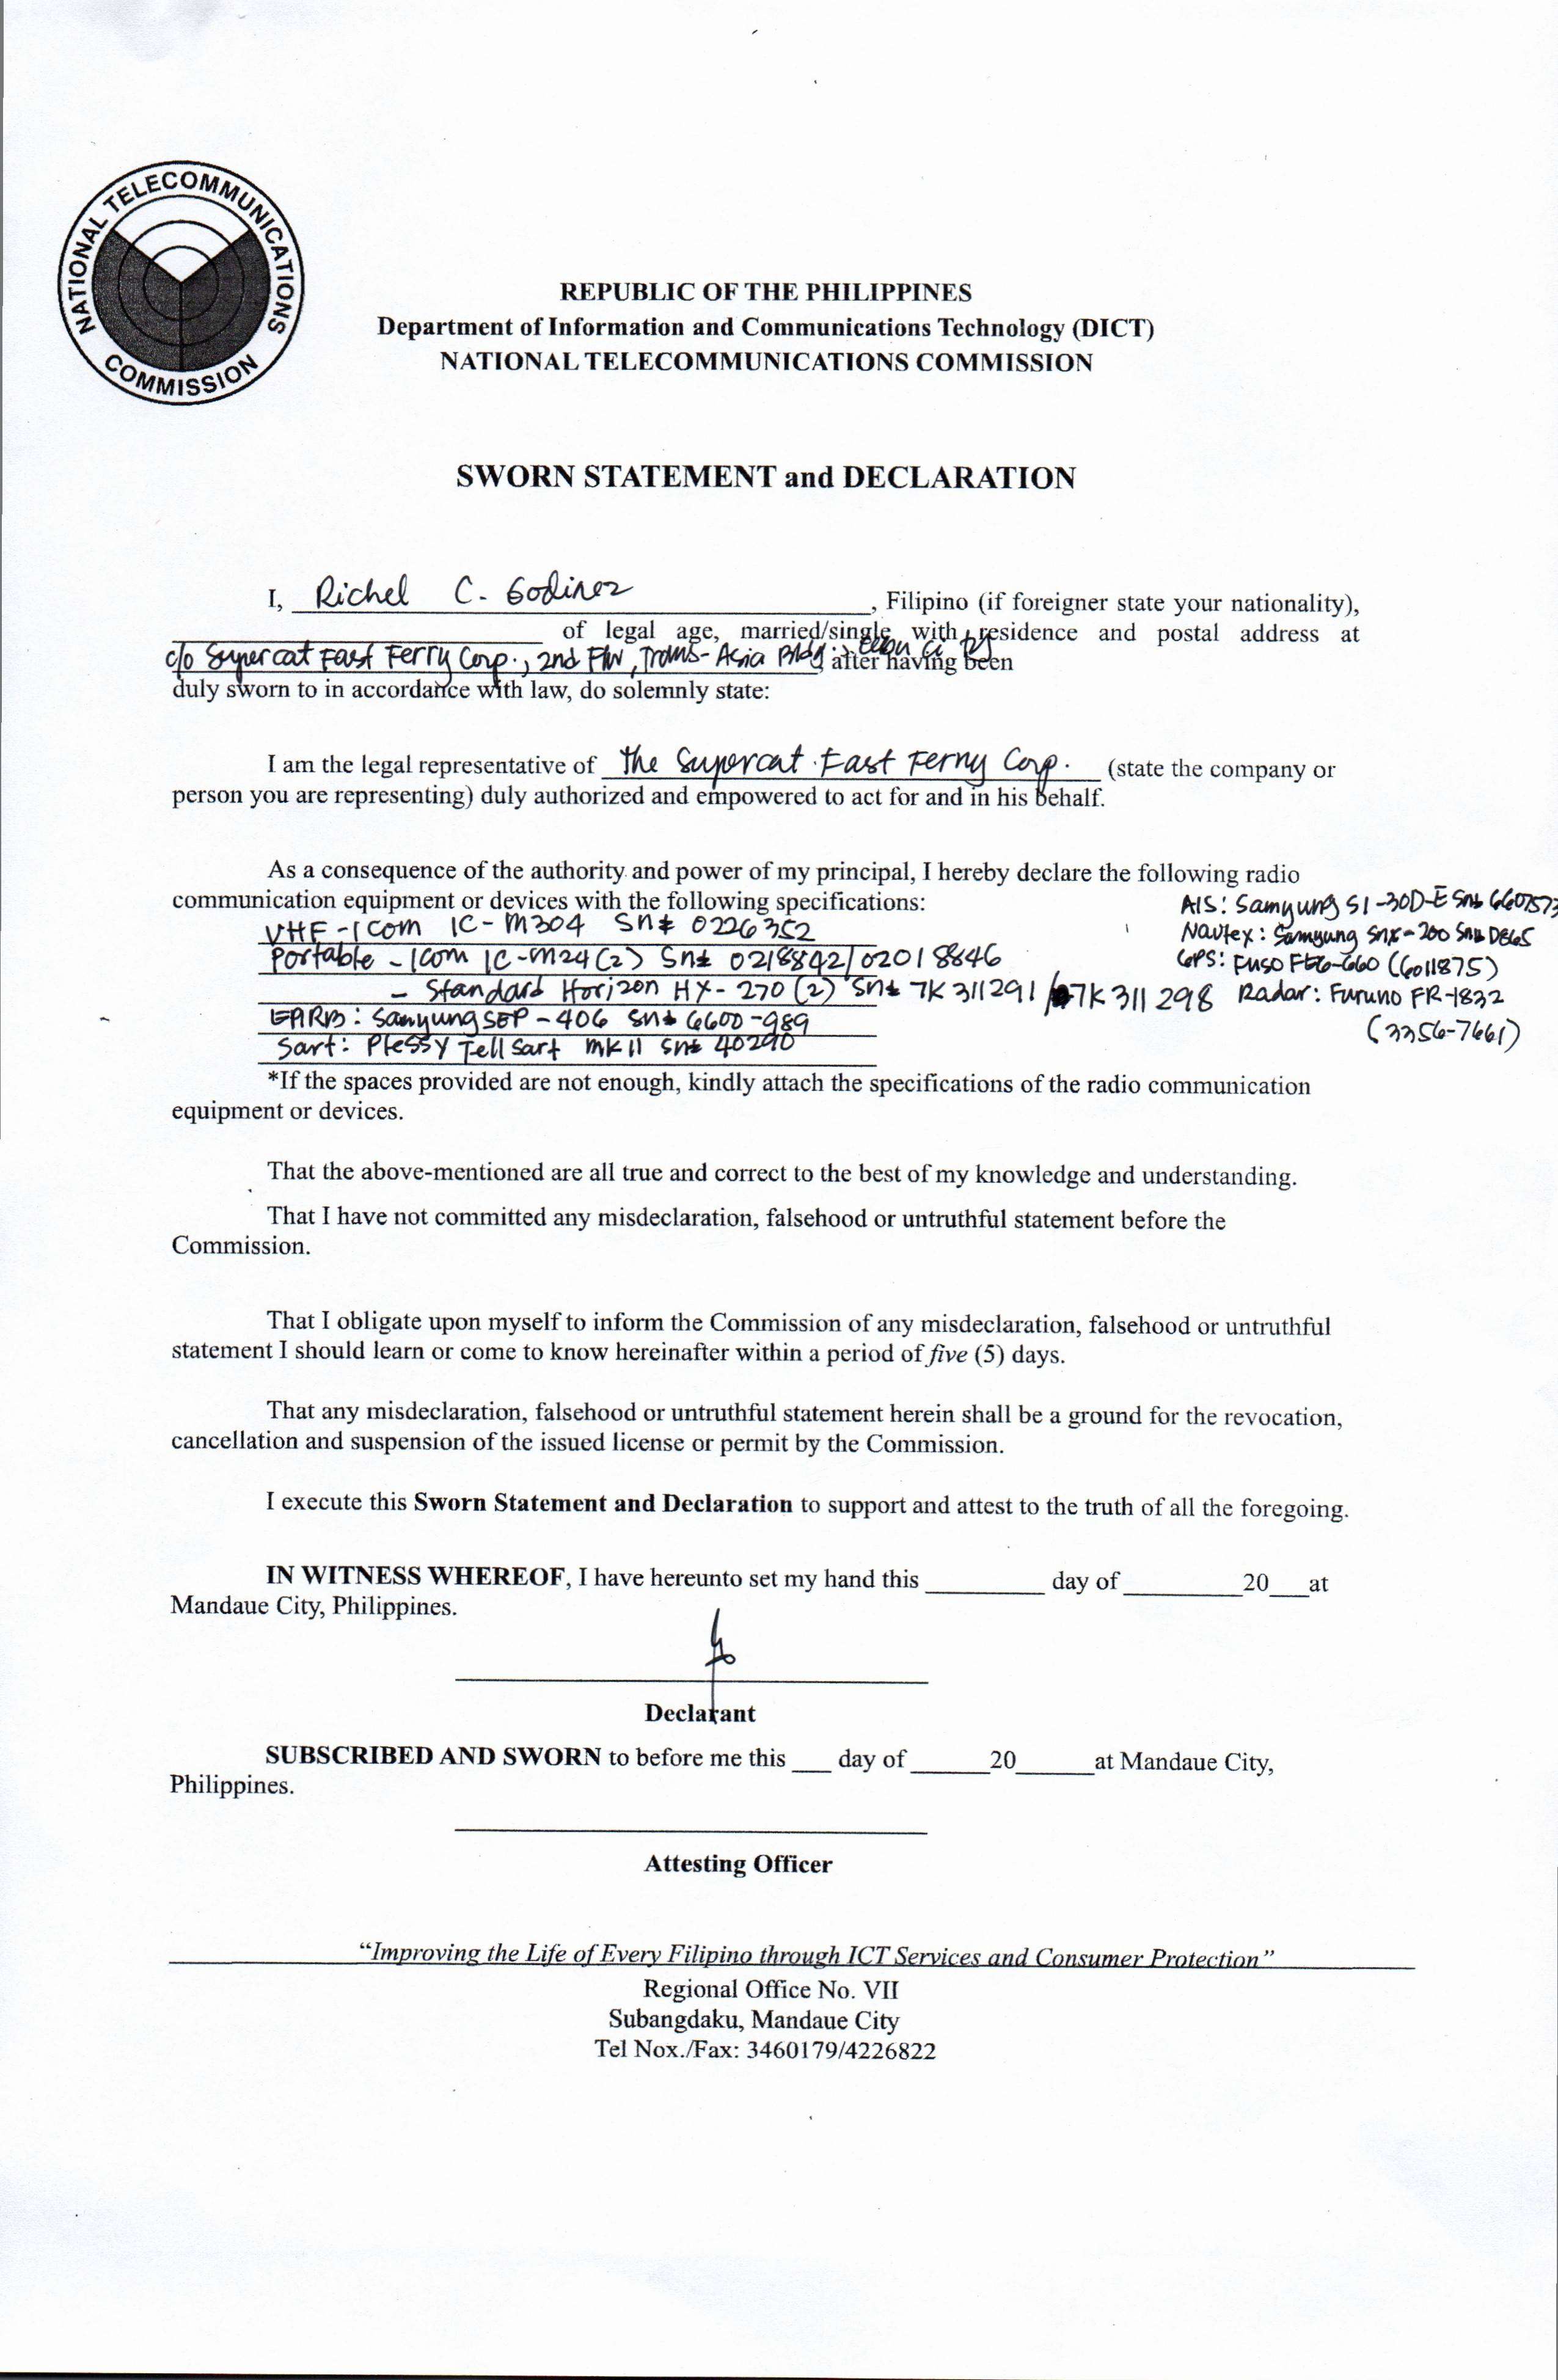 NATIONAL TELECOMMUNICATIONS COMMISSION
REPUBLIC OF THE PHILIPPINES
Department of Information and Communications Technology (DICT)
NATIONAL TELECOMMUNICATIONS COMMISSION
SWORN STATEMENT and DECLARATION
I, Richel C. Godinez, Filipino (if foreigner state your nationality),
of legal age, married/single with residence and postal address at
c/o Supercat Fast Ferry Corp., 2nd Flr, Trans-Asia Bldg., Cebu City after having been
duly sworn to in accordance with law, do solemnly state:
I am the legal representative of the Supercat Fast Ferry Corp. (state the company or
person you are representing) duly authorized and empowered to act for and in his behalf.
As a consequence of the authority and power of my principal, I hereby declare the following radio
communication equipment or devices with the following specifications:
VHF - Icom IC-M304 Sn# 0226352
Portable - Icom IC-M24(2) Sn# 0218842/02018846
- Standard Horizon HX-270 (2) Sn# 7K311291/7K311298
EPIRB: Samyung SEP-406 Sn# 6600-989
Sart: Plessy Tell Sart MK II Sn# 40290
AIS: Samyung SI-30D-E Sn# 6607573
Navtex: Samyung SNX-200 Sn#
GPS: Fuso (6011875)
Radar: Furuno FR-1832
(3356-7661)
*If the spaces provided are not enough, kindly attach the specifications of the radio communication
equipment or devices.
That the above-mentioned are all true and correct to the best of my knowledge and understanding.
That I have not committed any misdeclaration, falsehood or untruthful statement before the
Commission.
That I obligate upon myself to inform the Commission of any misdeclaration, falsehood or untruthful
statement I should learn or come to know hereinafter within a period of five (5) days.
That any misdeclaration, falsehood or untruthful statement herein shall be a ground for the revocation,
cancellation and suspension of the issued license or permit by the Commission.
I execute this Sworn Statement and Declaration to support and attest to the truth of all the foregoing.
IN WITNESS WHEREOF, I have hereunto set my hand this _________ day of _________20___at
Mandaue City, Philippines.
Declarant
SUBSCRIBED AND SWORN to before me this ___ day of ______20______at Mandaue City,
Philippines.
Attesting Officer
“Improving the Life of Every Filipino through ICT Services and Consumer Protection”
Regional Office No. VII
Subangdaku, Mandaue City
Tel Nox./Fax: 3460179/4226822